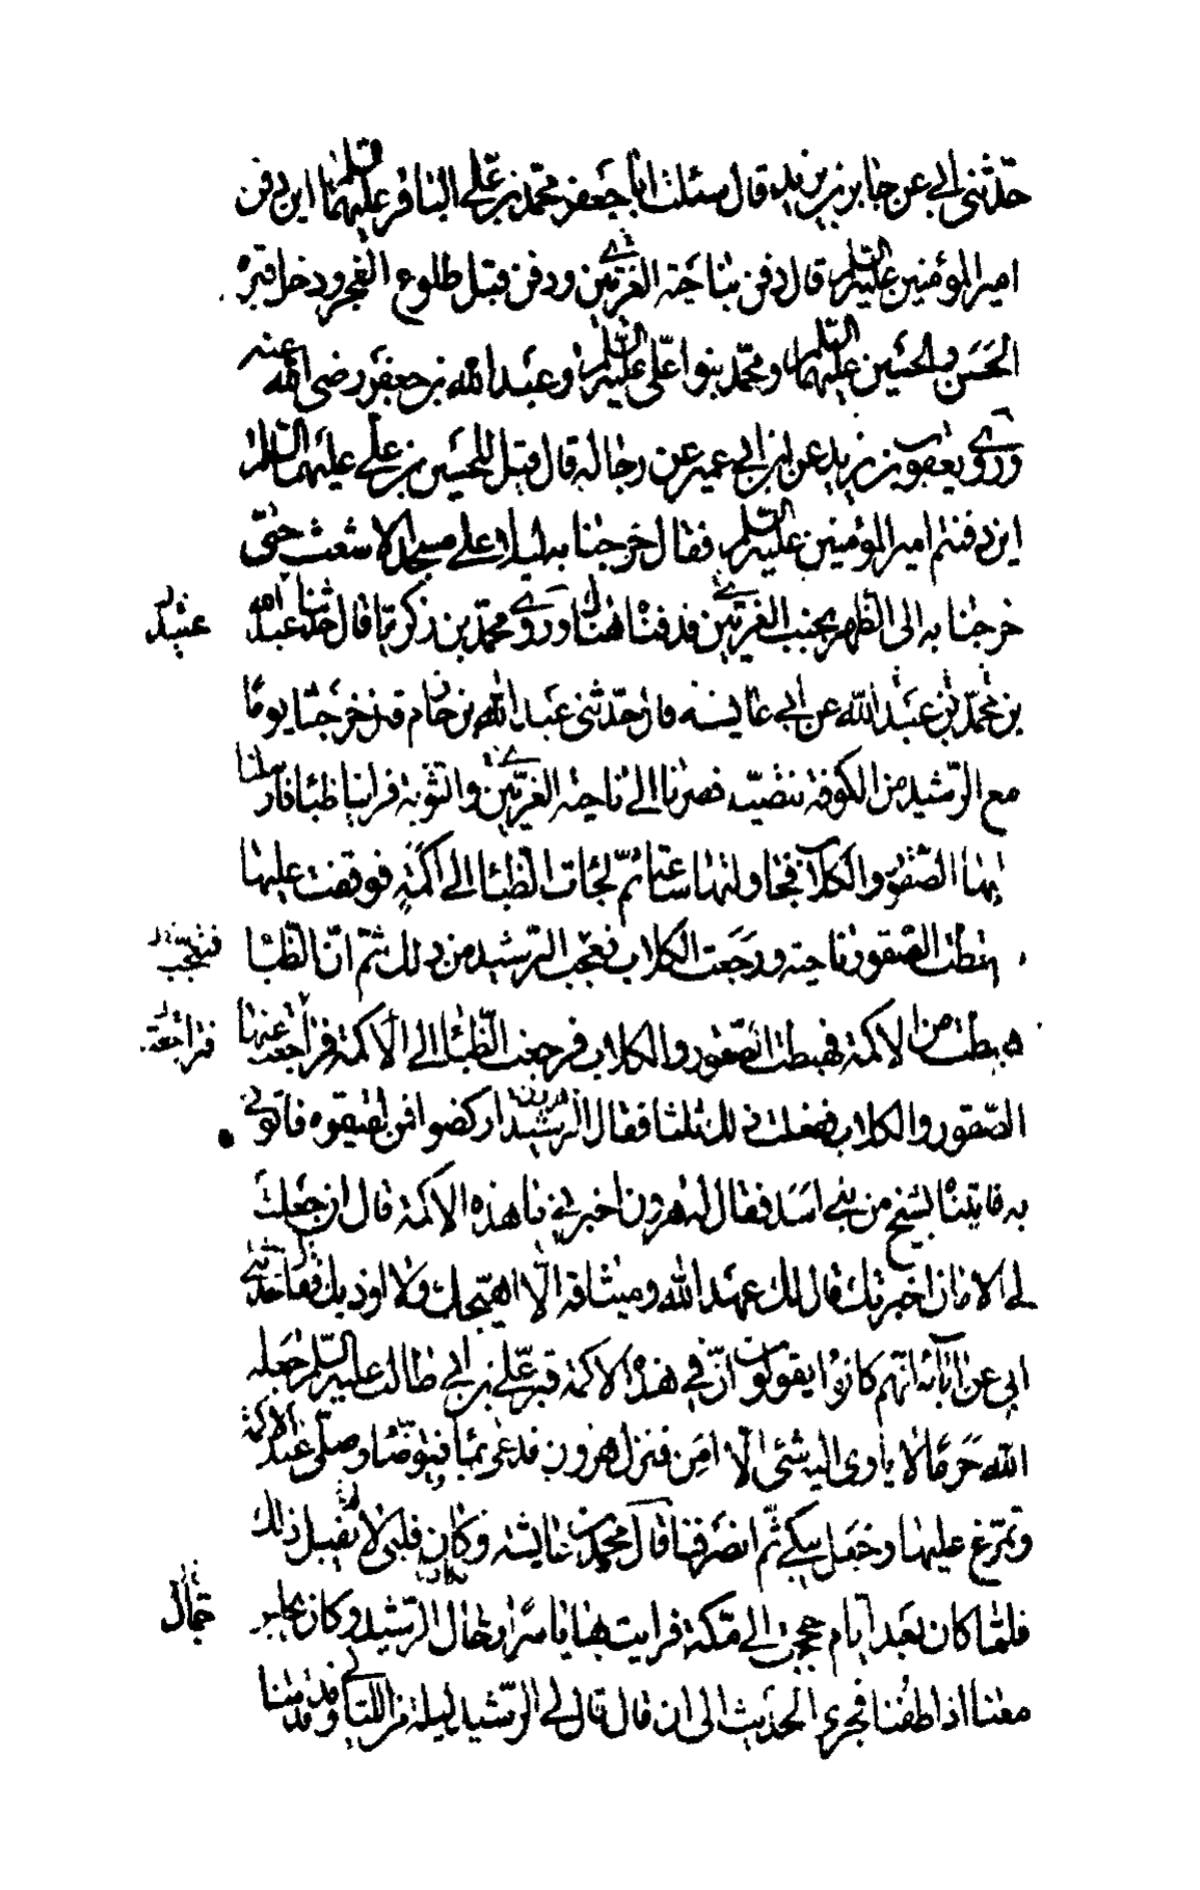 حدّثنى ابى عن جابر بن يزيد قال سئلت ابا جعفر محمّد بن علّى الباقر عليهما السلم اين دفن
امير المؤمنين عليه السلم قال دفن بناحية الغريّين ودفن قبل طلوع الفجر ودخل قبره
الحَسَن والحسَين عليهما السلم ومحمّد بنوا علّى عليه السلم وعبَد الله بن جعفَر رضى الله عنه
وروى يعقوب بن يزيد عن ابن ابى عمير عن رجاله قال قيل للحسَين بن علّى عليهما السلم
اين دفنتم امير المؤمنين عليه السلم فقال خرجنا به ليلا على مسجد الاشعث حتّى
خرجنا به الى الظهر بجنب الغريّين فدفنّاه هناك وروى محمّد بن زكريّا قال حدّثنا عبد الله
عبيد
بن محمّد بن عبَد الله عن ابى عايشه قال حدّثنى عبَد الله بن حازم قال خرَجنا يومًا
مع الرّشيد من الكوفة نتصيّد فصرنا الى ناحية الغريّين والثويّة فراينا ظباء فارسلنا
اليها الصّقور والكلاب فجاولتها ساعة ثمّ لجات الظباء الى اكَمَةٍ فوقفت عليها
فسقطت الصّقور ناحية ورَجَعت الكلاب فعجب الرّشيد من ذلك ثمّ انّ الظّباء
فتعجّب
هبطت من الاكمة فهبطت الصّقور والكلاب فرجعت الظّباء الى الاكمة فتراجعت عنها
فتراجعت
الصّقور والكلاب ففعلت ذلك ثلثا فقال الرّشيد هرون اركضوا فمن لقيتموه فاتونى
به فاتيناه بشيخ من بنى اسَد فقال له هرون اخبرنى ما هذه الاكمة قال ان جعَلتَ
لى الامان اخبرتك قال لك عهَد الله وميثاقه الّا اهيّجك ولا اوذيك فقال حدّثنى
ابى عن ابآئه انّهم كانوا يقولون انّ فى هذه الاكمة قبر علّى بن ابى طالب عليه السلم جعَله
الله حَرَمًا لا ياوى اليه شئ الّا امِن فنزل هرون فدعى بماء فتوضّا وصلّى عند الاكمة
وتمرّغ عليها وجعَل يبكى ثمّ انصَرفنا قال محمّد بن عايشة وكان قلبى لا يقبل ذلك
فلمّا كان بعَد ايّام حججت الى مكّة فرايت بها ياسرًا رحّال الرّشيد وكان يجلس
جمّال
معنا اذا طفنا فجرى الحديث الى ان قال قال لى الرّشيد ليلة من اللّيالى وقد قدمنا